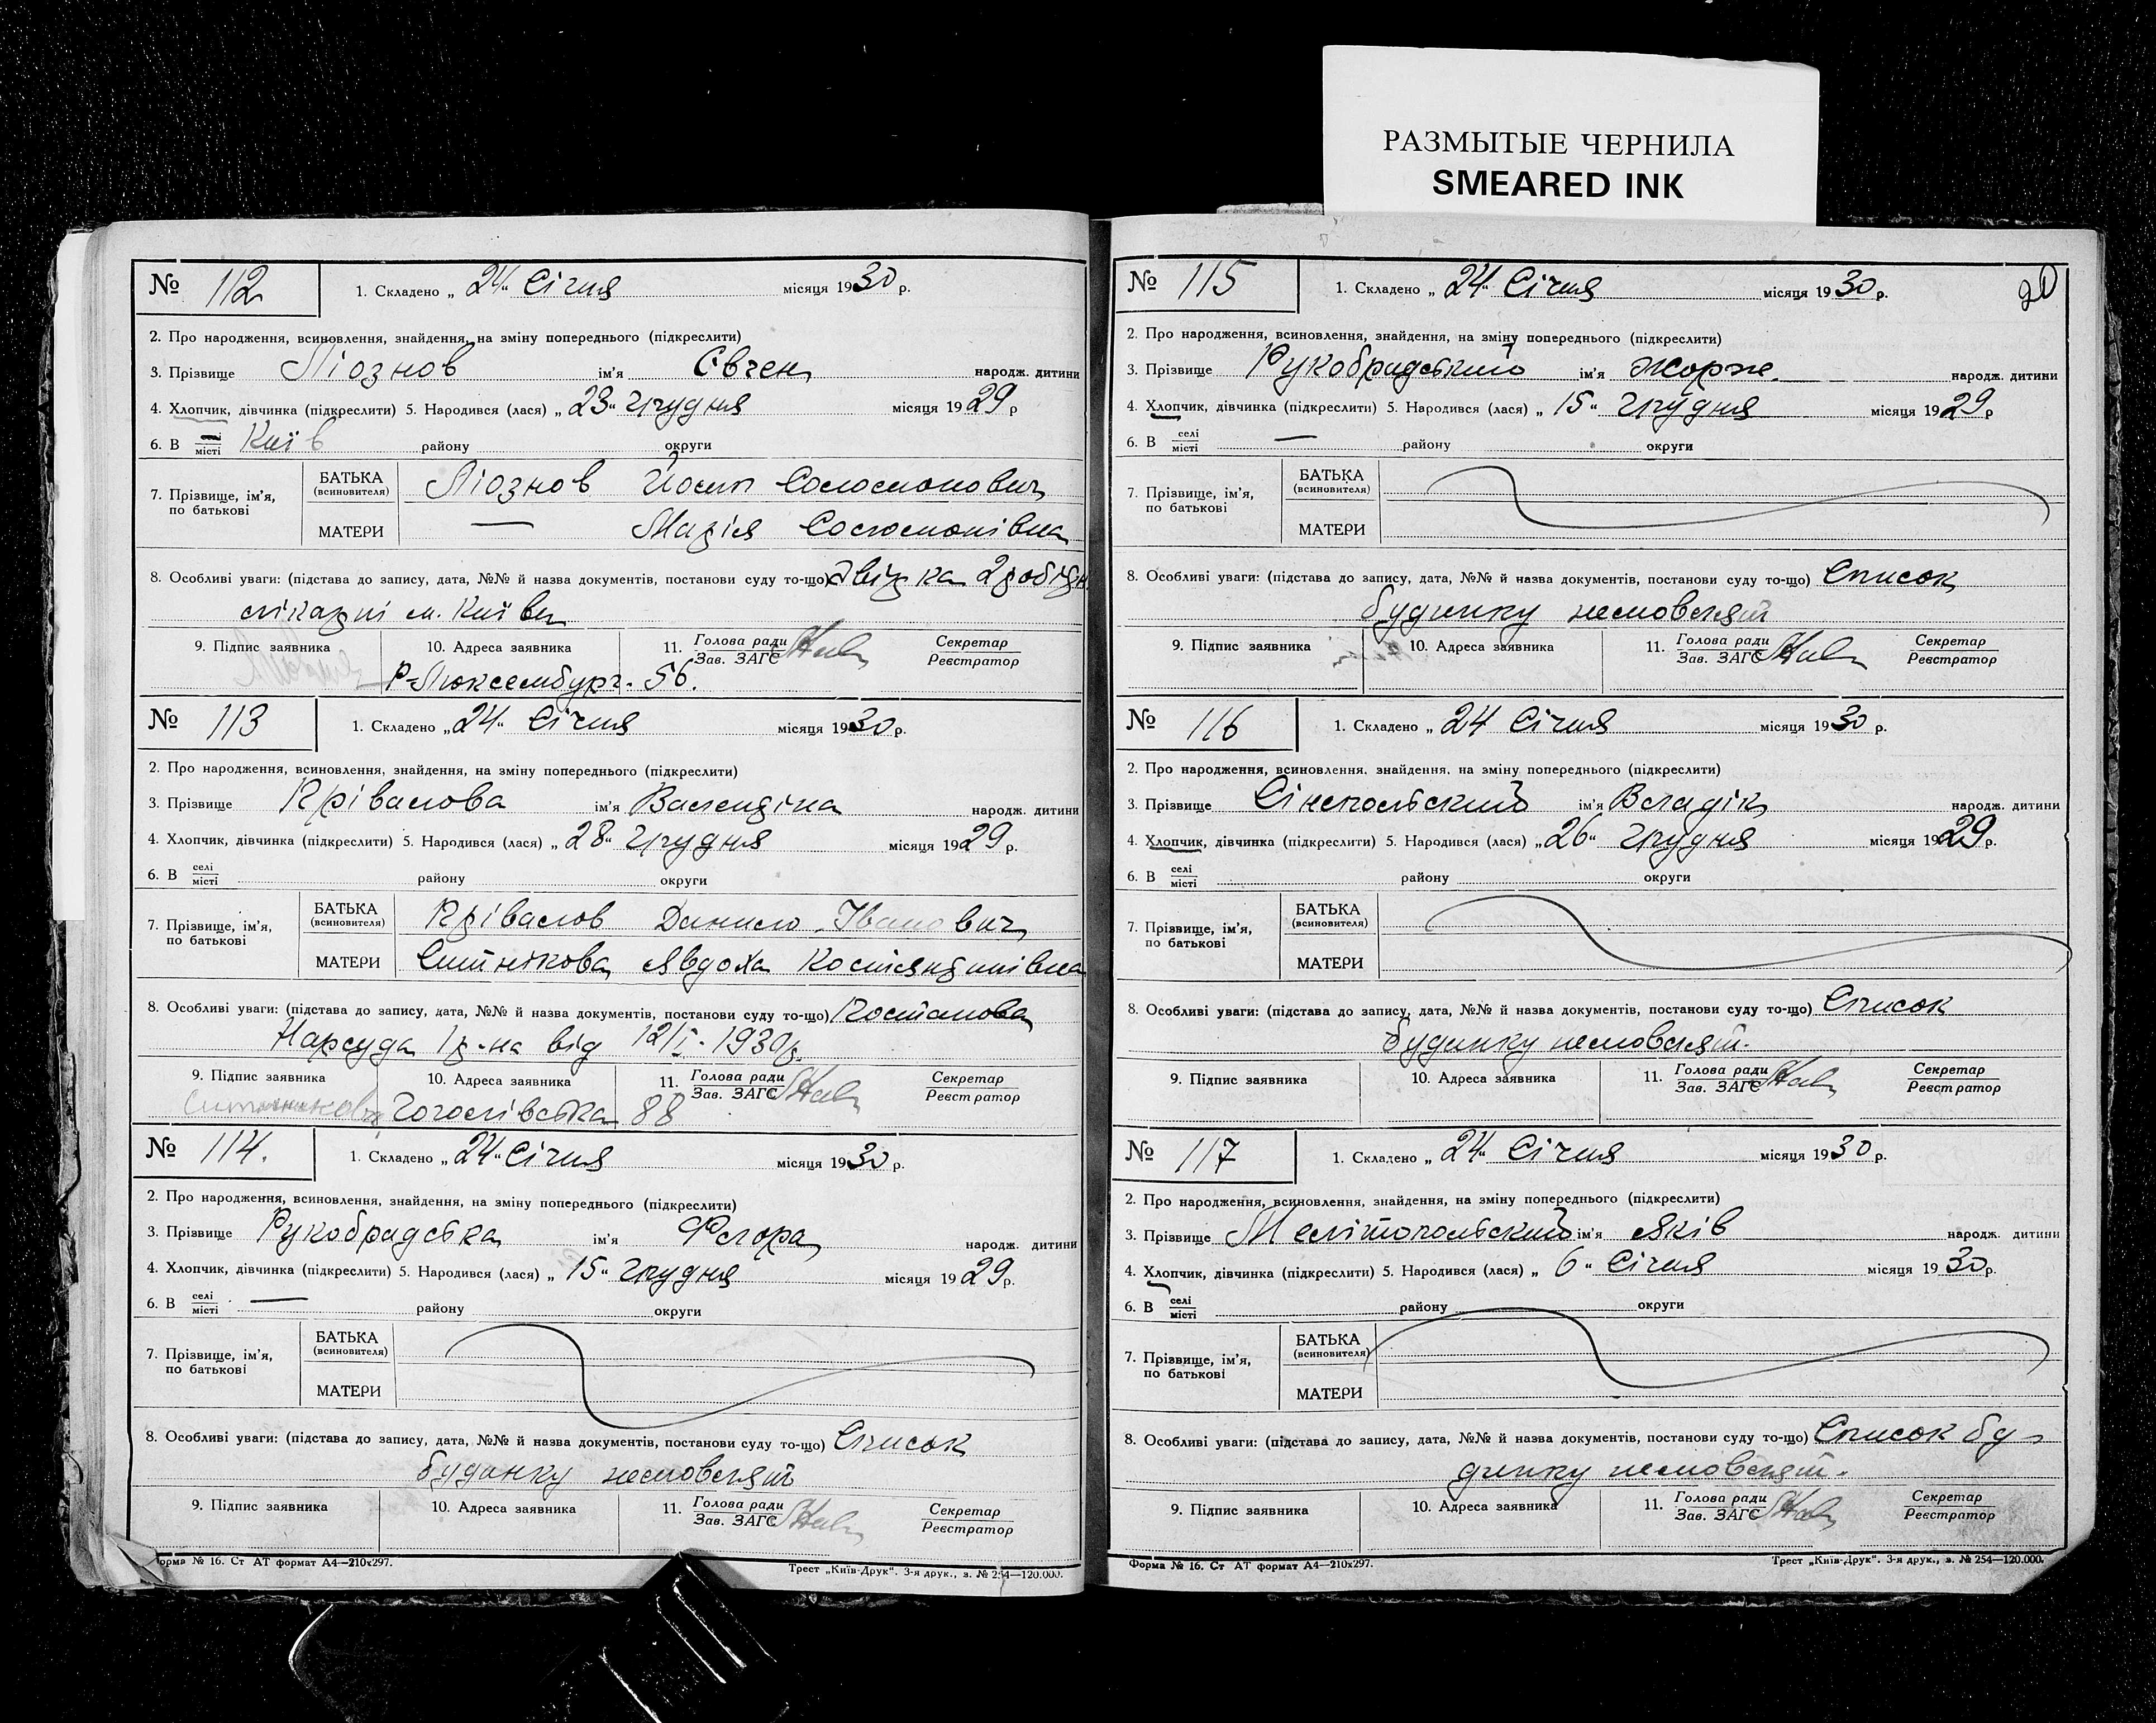 РАЗМЫТЫЕ ЧЕРНИЛА
SMEARED INK
№ 112 1. Складено „24“ Січня місяця 1930 р.
2. Про народження, всиновлення, знайдення, на зміну попереднього (підкреслити)
3. Прізвище Ліознов ім'я Євген народж. дитини
4. Хлопчик, дівчинка (підкреслити) 5. Народився (лася) „23“ грудня місяця 1929 р
6. В селі місті Київ району округи
7. Прізвище, ім'я, по батькові
БАТЬКА (всиновителя) Ліознов Йосип Соломонович
МАТЕРИ — Марія Соломонівна
8. Особливі уваги: (підстава до запису, дата, №№ й назва документів, постанови суду то-що) Довідка 2 робітн
лікарні м. Київа
9. Підпис заявника 10. Адреса заявника 11. Голова ради Зав. ЗАГС Секретар Реєстратор
Р-Люксембург. 56.
№ 113 1. Складено „24“ Січня місяця 1930 р.
2. Про народження, всиновлення, знайдення, на зміну попереднього (підкреслити)
3. Прізвище Крівалова ім'я Валендіна народж. дитини
4. Хлопчик, дівчинка (підкреслити) 5. Народився (лася) „28“ грудня місяця 1929 р.
6. В селі місті району округи
7. Прізвище, ім'я, по батькові
БАТЬКА (всиновителя) Крівалов Данило Іванович
МАТЕРИ Ситнікова Явдоха Костянтинівна
8. Особливі уваги: (підстава до запису, дата, №№ й назва документів, постанови суду то-що) Постанова
Нарсуда 1 р-на від 12/I-1930р.
9. Підпис заявника 10. Адреса заявника 11. Голова ради Зав. ЗАГС Секретар Реєстратор
Ситникова Гоголівська 88
№ 114. 1. Складено „24“ Січня місяця 1930 р.
2. Про народження, всиновлення, знайдення, на зміну попереднього (підкреслити)
3. Прізвище Рукобрадська ім'я Флора народж. дитини
4. Хлопчик, дівчинка (підкреслити) 5. Народився (лася) „15“ грудня місяця 1929 р.
6. В селі місті — району округи
7. Прізвище, ім'я, по батькові
БАТЬКА (всиновителя)
МАТЕРИ
8. Особливі уваги: (підстава до запису, дата, №№ й назва документів, постанови суду то-що) Список
будинку немовлят
9. Підпис заявника 10. Адреса заявника 11. Голова ради Зав. ЗАГС Секретар Реєстратор
орма № 16. Ст АТ формат А4—210x297. Трест „Київ-Друк“. 3-я друк., з. № 254—120.000.
№ 115 1. Складено „24“ Січня місяця 1930 р. 20
2. Про народження, всиновлення, знайдення, на зміну попереднього (підкреслити)
3. Прізвище Рукобрадський ім'я Жорж. народж. дитини
4. Хлопчик, дівчинка (підкреслити) 5. Народився (лася) „15“ грудня місяця 1929 р
6. В селі місті — району округи
7. Прізвище, ім'я, по батькові
БАТЬКА (всиновителя)
МАТЕРИ
8. Особливі уваги: (підстава до запису, дата, №№ й назва документів, постанови суду то-що) Список
будинку немовлят
9. Підпис заявника 10. Адреса заявника 11. Голова ради Зав. ЗАГС Секретар Реєстратор
№ 116 1. Складено „24 Січня місяця 1930 р.
2. Про народження, всиновлення, знайдення, на зміну попереднього (підкреслити)
3. Прізвище Сінепольський ім'я Владік народж. дитини
4. Хлопчик, дівчинка (підкреслити) 5. Народився (лася) „26“ грудня місяця 1929 р.
6. В селі місті району округи
7. Прізвище, ім'я, по батькові
БАТЬКА (всиновителя)
МАТЕРИ
8. Особливі уваги: (підстава до запису, дата, №№ й назва документів, постанови суду то-що) Список
будинку немовлят.
9. Підпис заявника 10. Адреса заявника 11. Голова ради Зав. ЗАГС Секретар Реєстратор
№ 117 1. Складено „24“ Січня місяця 1930 р.
2. Про народження, всиновлення, знайдення, на зміну попереднього (підкреслити)
3. Прізвище Мелітопольський ім'я Яків народж. дитини
4. Хлопчик, дівчинка (підкреслити) 5. Народився (лася) „6“ Січня місяця 1930 р.
6. В селі місті району округи
7. Прізвище, ім'я, по батькові
БАТЬКА (всиновителя)
МАТЕРИ
8. Особливі уваги: (підстава до запису, дата, №№ й назва документів, постанови суду то-що) Список бу-
динку немовлят.
9. Підпис заявника 10. Адреса заявника 11. Голова ради Зав. ЗАГС Секретар Реєстратор
Форма № 16. Ст АТ формат А4—210x297. Трест „Київ-Друк“. 3-я друк., з. № 254—120.000.